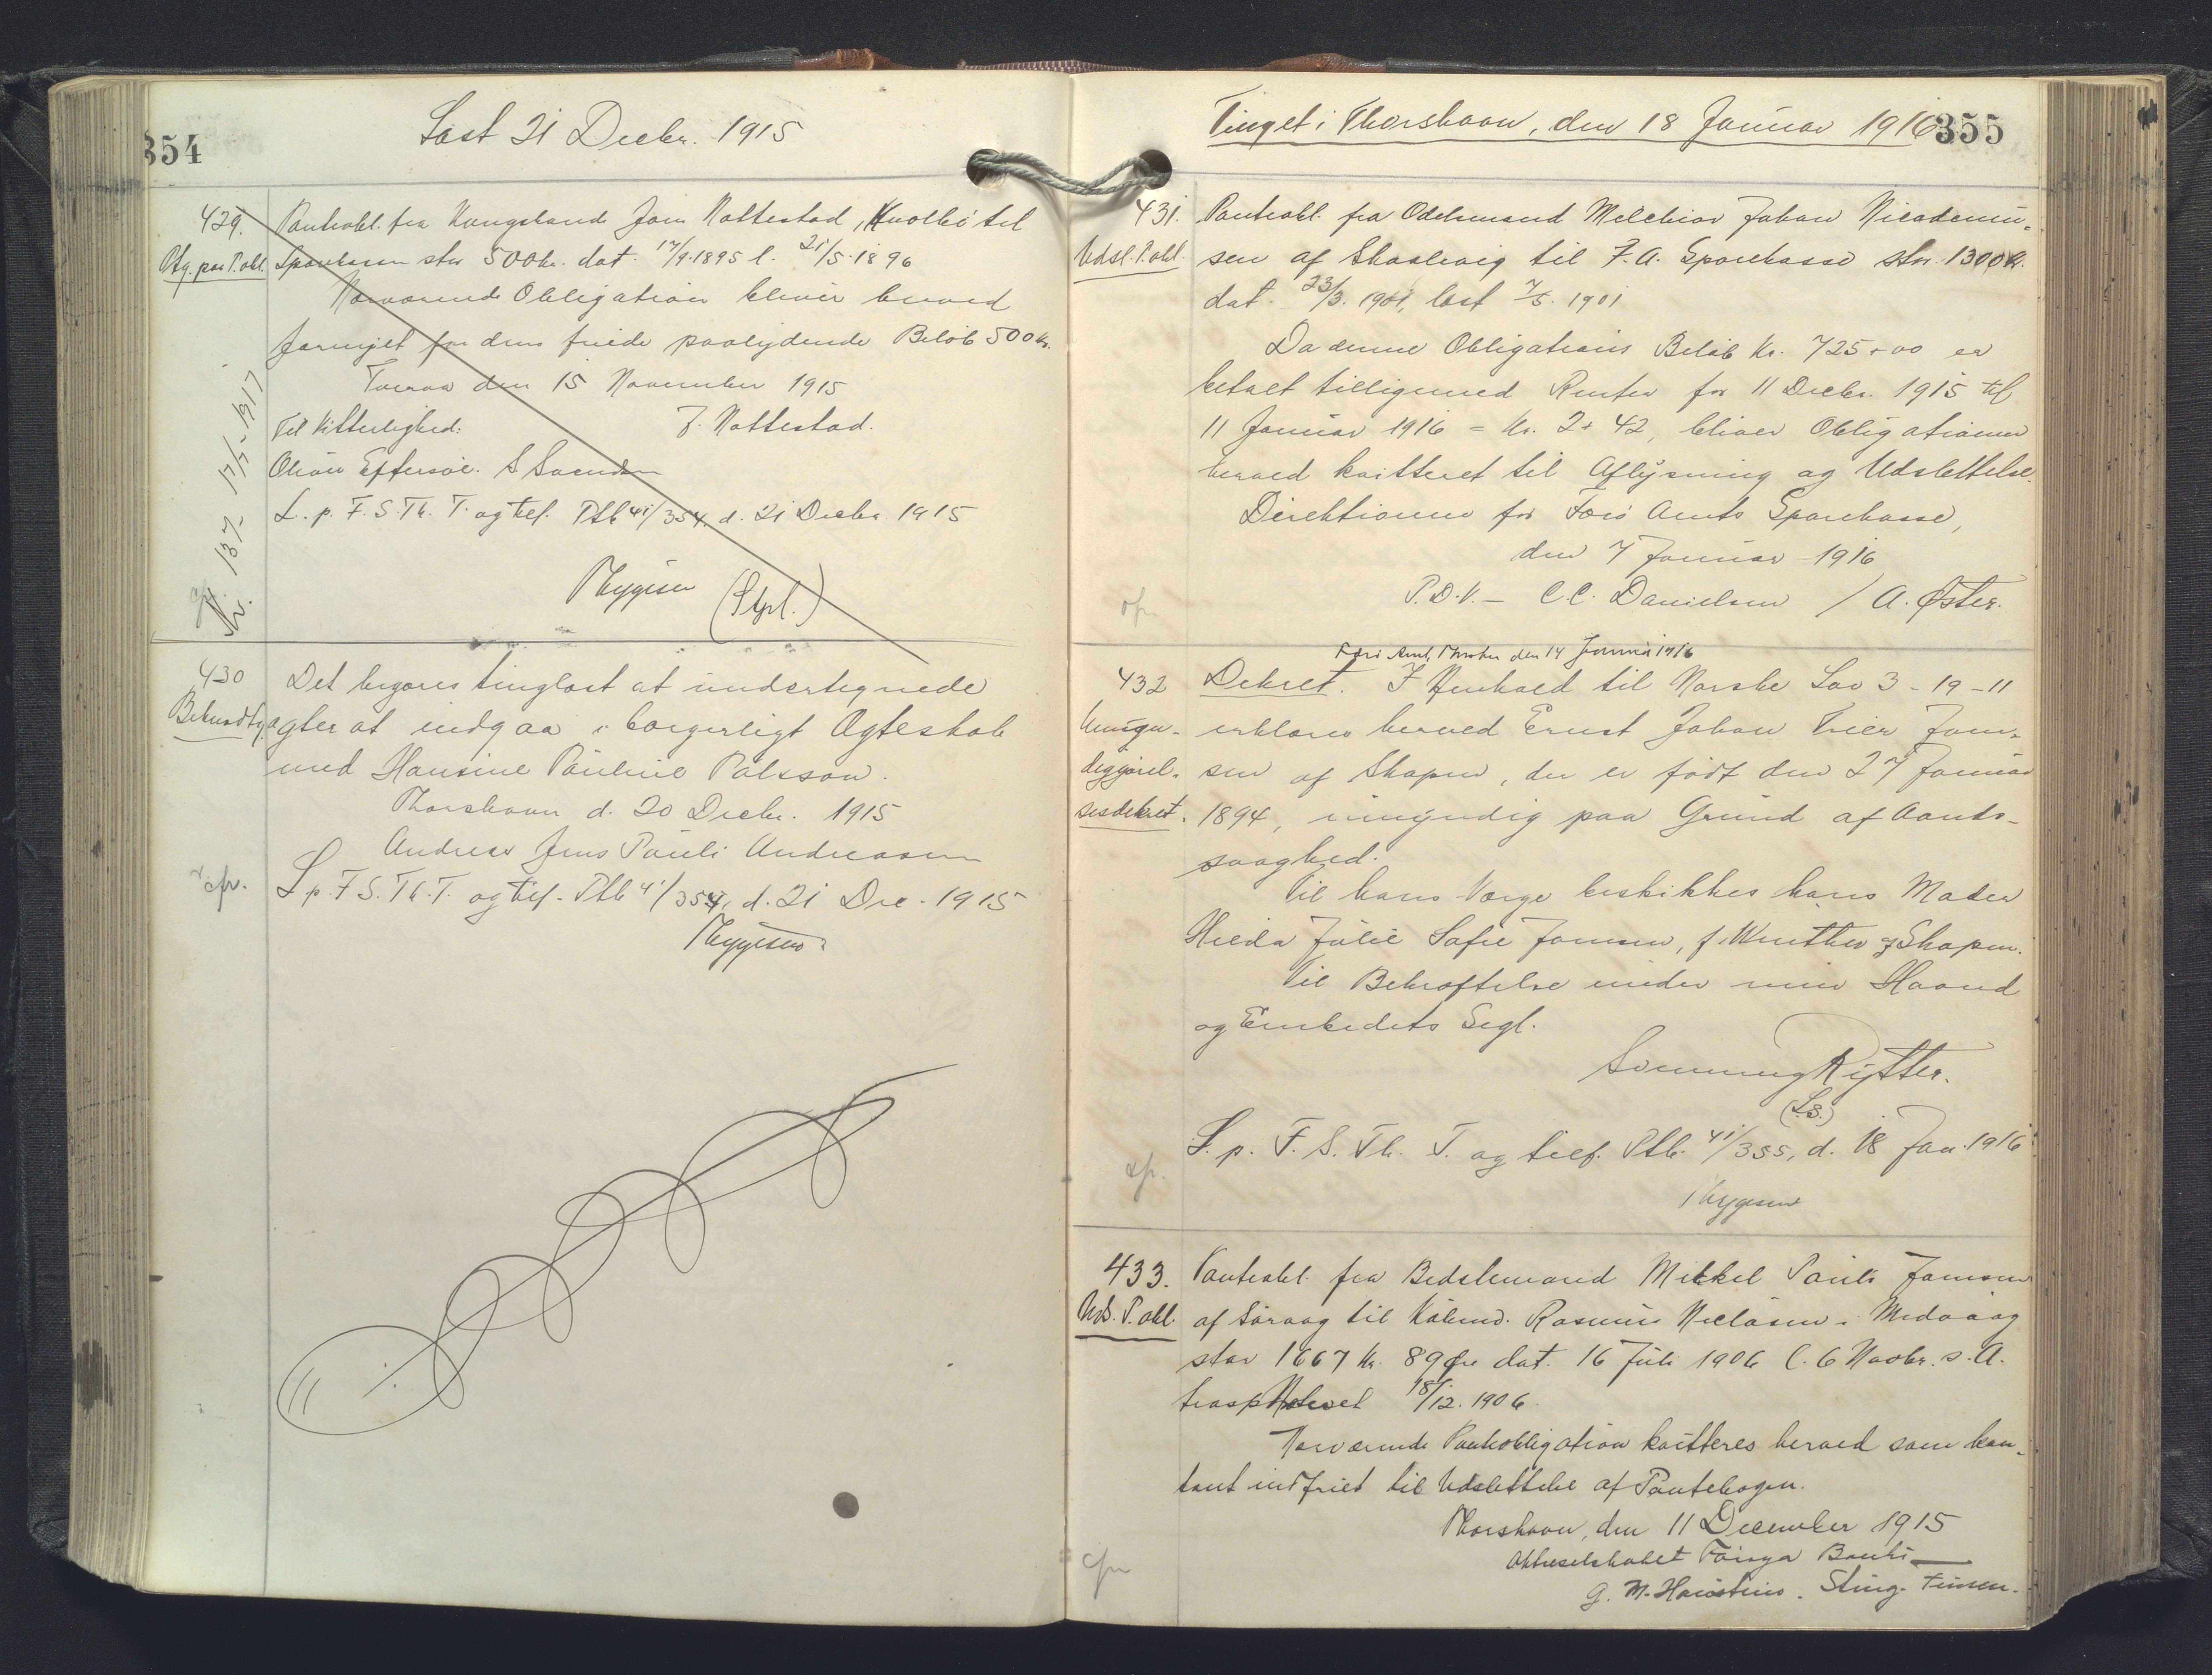 354
Læst 21 Decbr. 1915
429.
Pantobl. fra Kongsbonde Joen Nattestad, Kvalbö til
Paateg. paa P.obl.
Sparkassen stor 500 kr. dat. 17/9. 1895 l. 21/5. 1896
Nærværende Obligation bliver herved
fornyet for dens fulde paalydende Beløb 500 kr.
Tveraa den 15 November 1915
Til Vitterlighed: J. Nattestad.
Oliver Effersøe. S Svendsen
L. p. F. S. Th. T. og tilf. Ptb 41/354, d. 21 Decbr 1915
Thygesen (Styrl.)
430
Det begæres tinglæst at undertegnede
agter at indgaa i borgerligt Ægteskab
med Hansine Pauline Pálsson.
Thorshavn d. 20 Decbr. 1915
Andreas Jens Pauli Andreasen
cfr.
L p. F S. Th. T. og tilf. Ptb 41/354, d. 21 Dec. 1915
Thygesen
Tinget i Thorshavn, den 18 Januar 1916
355
431.
Pantobl. fra Odelsmand Melchior Johan Nicodemu-
Udsl. P.obl.
sen af Skaalevig til F. A. Sparekasse stor. 1300 kr.
dat. 23/3. 1901, læst 7/5. 1901
Da denne Obligations Beløb Kr. 725,00 er
betalt tilligemed Renter for 11 Decbr. 1915 til
11 Januar 1916 = Kr. 2,42, bliver Obligationen
herved kvitteret til Aflysning og Udslettelse.
Direktionen for Færø Amts Sparekasse,
den 7 Januar 1916
P.D.V. – C.C. Danielsen / A. Øster.
cfr
Færø Amt, Thorshavn den 14 Januar 1916
432
Dekret. I Henhold til Norske Lov 3-19-11
Umyn-
erklæres herved Ernst Johan Trier Joen-
diggørel-
sen af Skopen, der er født den 27 Januar
sesdekret.
1894, umyndig paa Grund af Aands-
svaghed.
Til hans Værge beskikkes hans Moder
Hilda Julie Sofie Joensen, f. Winther af Skopen.
Til Bekræftelse under min Haand
og Embedets Segl.
Svenning Rytter.
(L.S.)
L. p. F. S. Th. T. og tilf. Ptb. 41/355, d. 18 Jan. 1916
cfr.
Thygesen
433.
Pantobl. fra Bedstemand Mikkel Pauli Joensen
Uds. P.obl.
af Sørvaag til Købmd. Rasmus Niclasen i Midvaag
stor 1667 Kr. 89 Øre dat. 16 Juli 1906 l. 6 Novbr. s. A.
transporteret 18/12. 1906.
Nærværende Pantobligation kvitteres herved som kon-
tant indfriet til Udslettelse af Pantebogen.
Thorshavn, den 11 December 1915
Aktieselskabet Føroya Banki
cfr